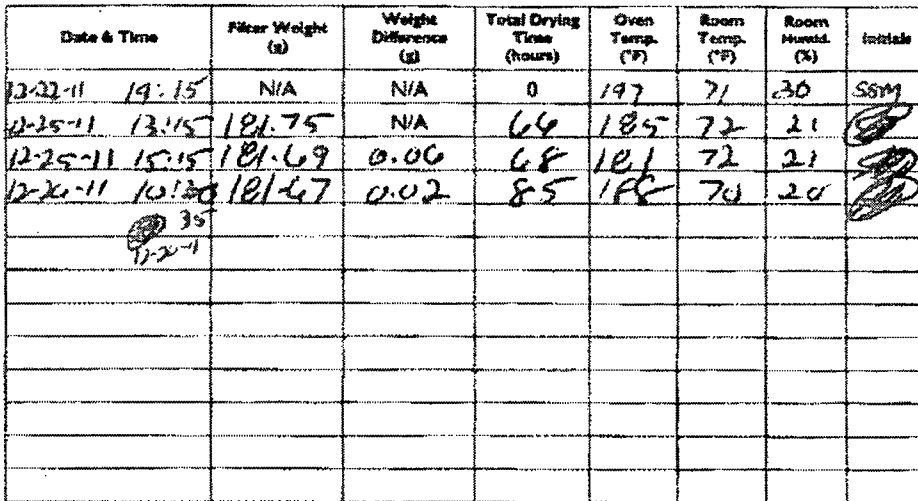 Date & Time Filter Weight (g) Weight Difference (g) Total Drying Time (hours) Oven Temp. (°F) Room Temp. (°F) Room Humid. (%) Initials
12-22-11 19:15 N/A N/A 0 197 71 30
12-25-11 13:15 181.75 N/A 66 185 72 21
12-25-11 15:15 181.69 0.06 68 181 72 21
12-26-11 181.67 0.02 85 188 70 20
35
12-26-11